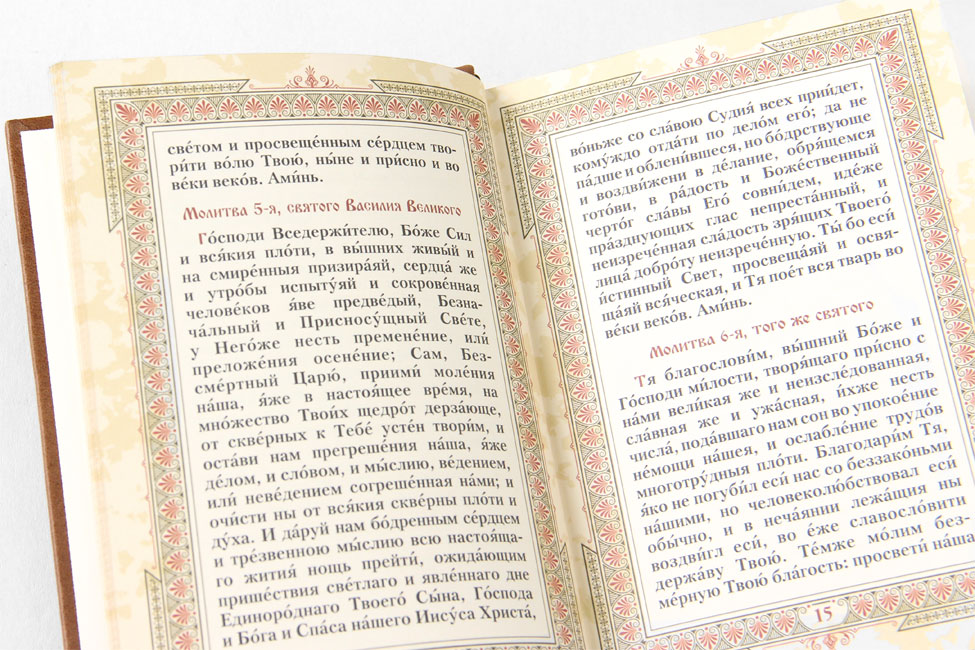 све́том и просвеще́нным се́рдцем тво-
ри́ти во́лю Твою́, ны́не и при́сно и во
ве́ки веко́в. Ами́нь.
Молитва 5-я, святого Василия Великого
Го́споди Вседержи́телю, Бо́же Сил
и вся́кия пло́ти, в вы́шних живы́й и
на смире́нныя призира́яй, сердца́ же
и утро́бы испыту́яй и сокрове́нная
челове́ков я́ве предве́дый, Безна-
ча́льный и Присносу́щный Све́те,
у Него́же несть премене́ние, или́
преложе́ния осене́ние; Сам, Без-
сме́ртный Царю́, приими́ моле́ния
на́ша, я́же в настоя́щее вре́мя, на
мно́жество Твои́х щедро́т дерза́юще,
от скве́рных к Тебе́ усте́н твори́м, и
оста́ви нам прегреше́ния на́ша, я́же
де́лом, и сло́вом, и мы́слию, ве́дением,
или́ неве́дением согреше́нная на́ми; и
очи́сти ны от вся́кия скве́рны пло́ти и
ду́ха. И да́руй нам бо́дренным се́рдцем
и тре́звенною мы́слию всю настоя́ща-
го жития́ нощь прейти́, ожида́ющим
прише́ствия све́тлаго и явле́ннаго дне
Единоро́днаго Твоего́ Сы́на, Го́спода
и Бо́га и Спа́са на́шего Иису́са Христа́,
во́ньже со сла́вою Судия́ всех прии́дет,
кому́ждо отда́ти по дело́м его́; да не
па́дше и облени́вшеся, но бо́дрствующе
и воздви́жени в де́лание, обря́щемся
гото́ви, в ра́дость и Боже́ственный
черто́г сла́вы Его́ совни́дем, иде́же
пра́зднующих глас непреста́нный, и
неизрече́нная сла́дость зря́щих Твоего́
лица́ добро́ту неизрече́нную. Ты́ бо еси́
и́стинный Свет, просвеща́яй и освя-
ща́яй вся́ческая, и Тя пое́т вся тварь во
ве́ки веко́в. Ами́нь.
Молитва 6-я, того же святого
Тя благослови́м, вы́шний Бо́же и
Го́споди ми́лости, творя́щаго при́сно с
на́ми вели́кая же и неизсле́дованная,
сла́вная же и ужа́сная, и́хже несть
числа́, пода́вшаго нам сон во упокое́ние
не́мощи на́шея, и ослабле́ние трудо́в
многотру́дныя пло́ти. Благодари́м Тя,
я́ко не погуби́л еси́ нас со беззако́ньми
на́шими, но человеколю́бствовал еси́
обы́чно, и в неча́янии лежа́щия ны
воздви́гл еси́, во е́же славосло́вити
держа́ву Твою́. Те́мже мо́лим без-
ме́рную Твою́ бла́гость: просвети́ на́ша
15